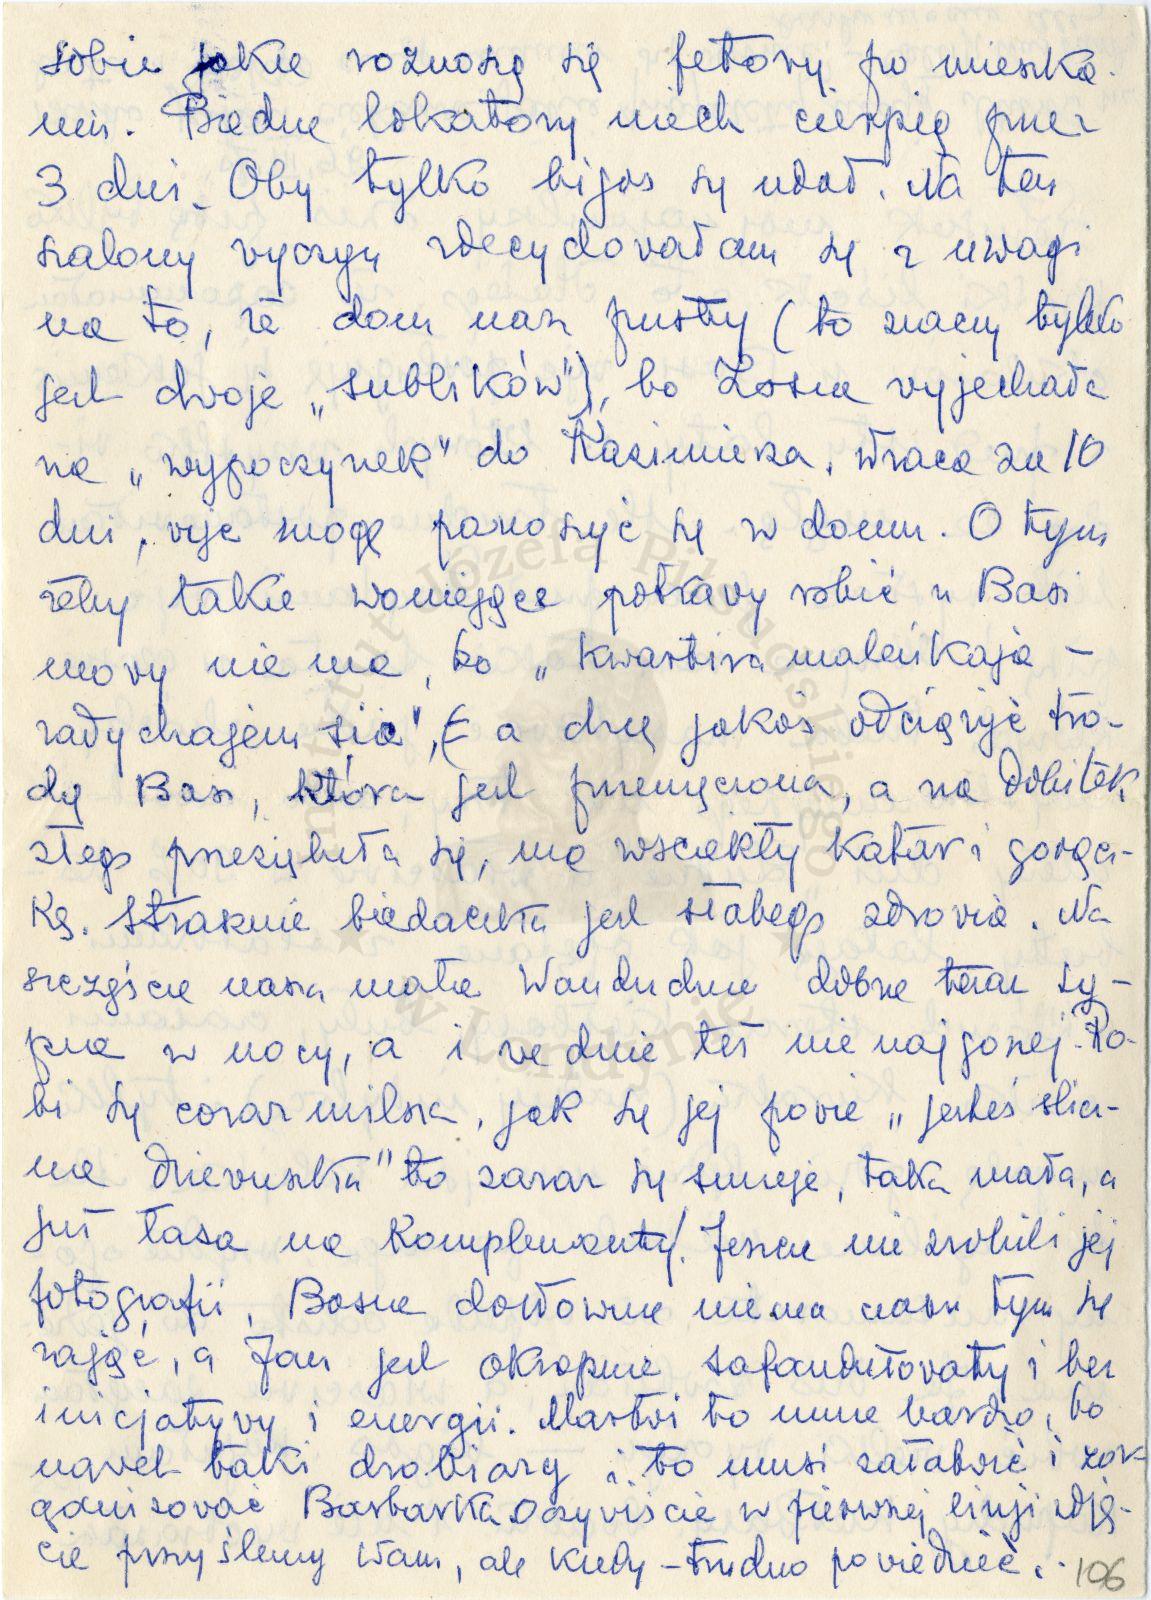 sobie jakie roznoszą się fetory po mieszka-
niu. Biedne lokatory niech cierpią przez
3 dni. Oby tylko bigos się udał. Na ten
szalony wyczyn zdecydowałam się z uwagi
na to, że dom nasz pusty (to znaczy tylko
jest dwoje „sublików"), bo Zosia wyjechała
na „wypoczynek" do Kazimierza. Wraca za 10
dni, więc mogę panoszyć się w domu. O tym
żeby takie woniejące potrawy robić u Basi
mowy nie ma, bo „kwartira maleńkaja –
zadychajem sia", a chcę jakoś odciążyć tro-
dę Basi, która jest przemęczona, a na dobitek
złego przeziębiła się, ma wściekły katar i gorącz-
kę. Strasznie biedaczka jest słabego zdrowia. Na
szczęście nasza mała Wandudnia dobrze teraz sy-
pia w nocy, a i we dnie też nie najgorzej. Ro-
bi się coraz milsza, jak się jej powie „jesteś ślicz-
na dziewuszka" to zaraz się śmieje, taka mała, a
już łasa na komplementy! Jeszcze nie zrobili jej
fotografii, Basia dosłownie nie ma czasu tym się
zająć, a Jan jest okropnie safandułowaty i bez
inicjatywy i energii. Martwi to mnie bardzo, bo
nawet taki drobiazg i to musi załatwić i zor-
ganizować Barbarka. Oczywiście w pierwszej linji zdję-
cie przyślemy Wam, ale kiedy – trudno powiedzieć.
106
Instytut Józefa Piłsudskiego
w Londynie